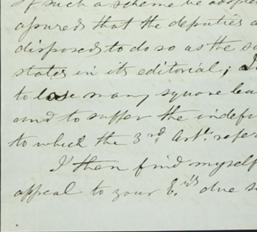 of such a scheme be adop
assured that the deputies a
disposed to do so as the s
states in its editorial; I
to lose many square lea
and to suffer the indef
to which the 3rd. Artl. refer
I then find myself
appeal to your E.'s due s